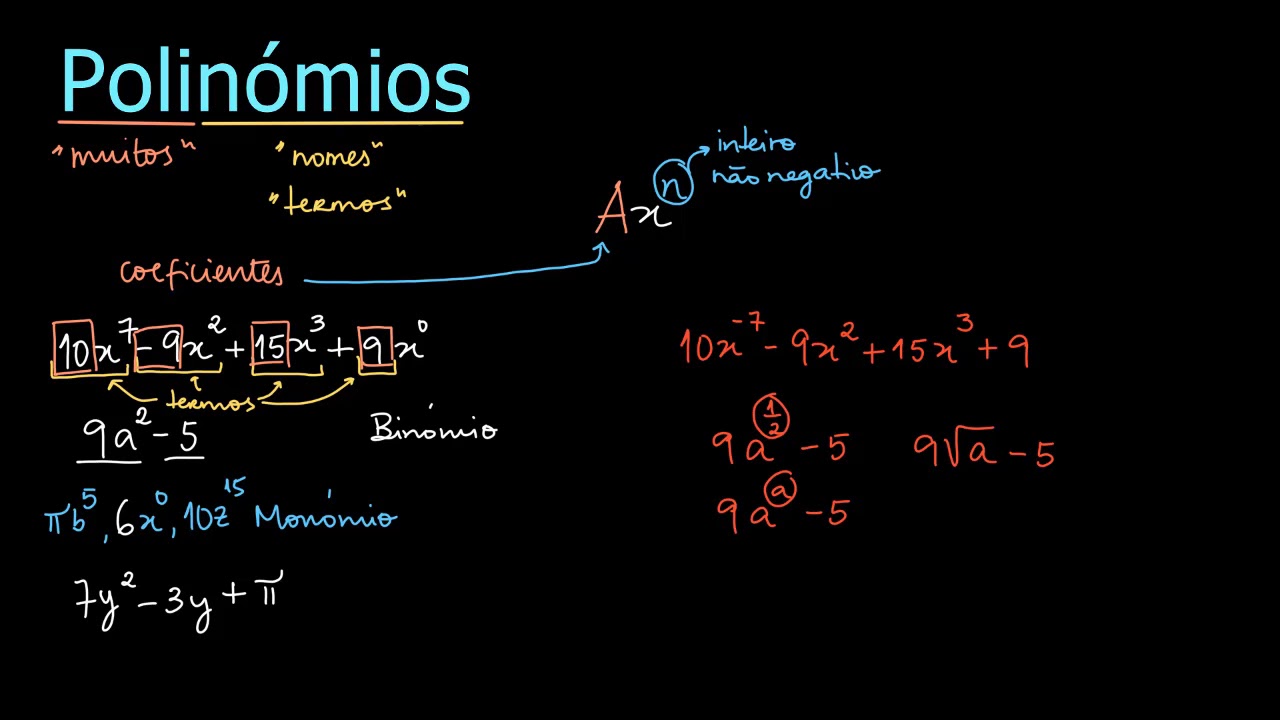 Polinómios
"muitos" "nomes"
"termos"
Ax^n
inteiro
não negativo
coeficientes
10x^7 - 9x^2 + 15x^3 + 9x^0
termos
9a^2 - 5 Binómio
πb^5, 6x^0, 10z^15 Monómio
7y^2 - 3y + π
10x^-7 - 9x^2 + 15x^3 + 9
9a^(1/2) - 5 9√a - 5
9a^a - 5